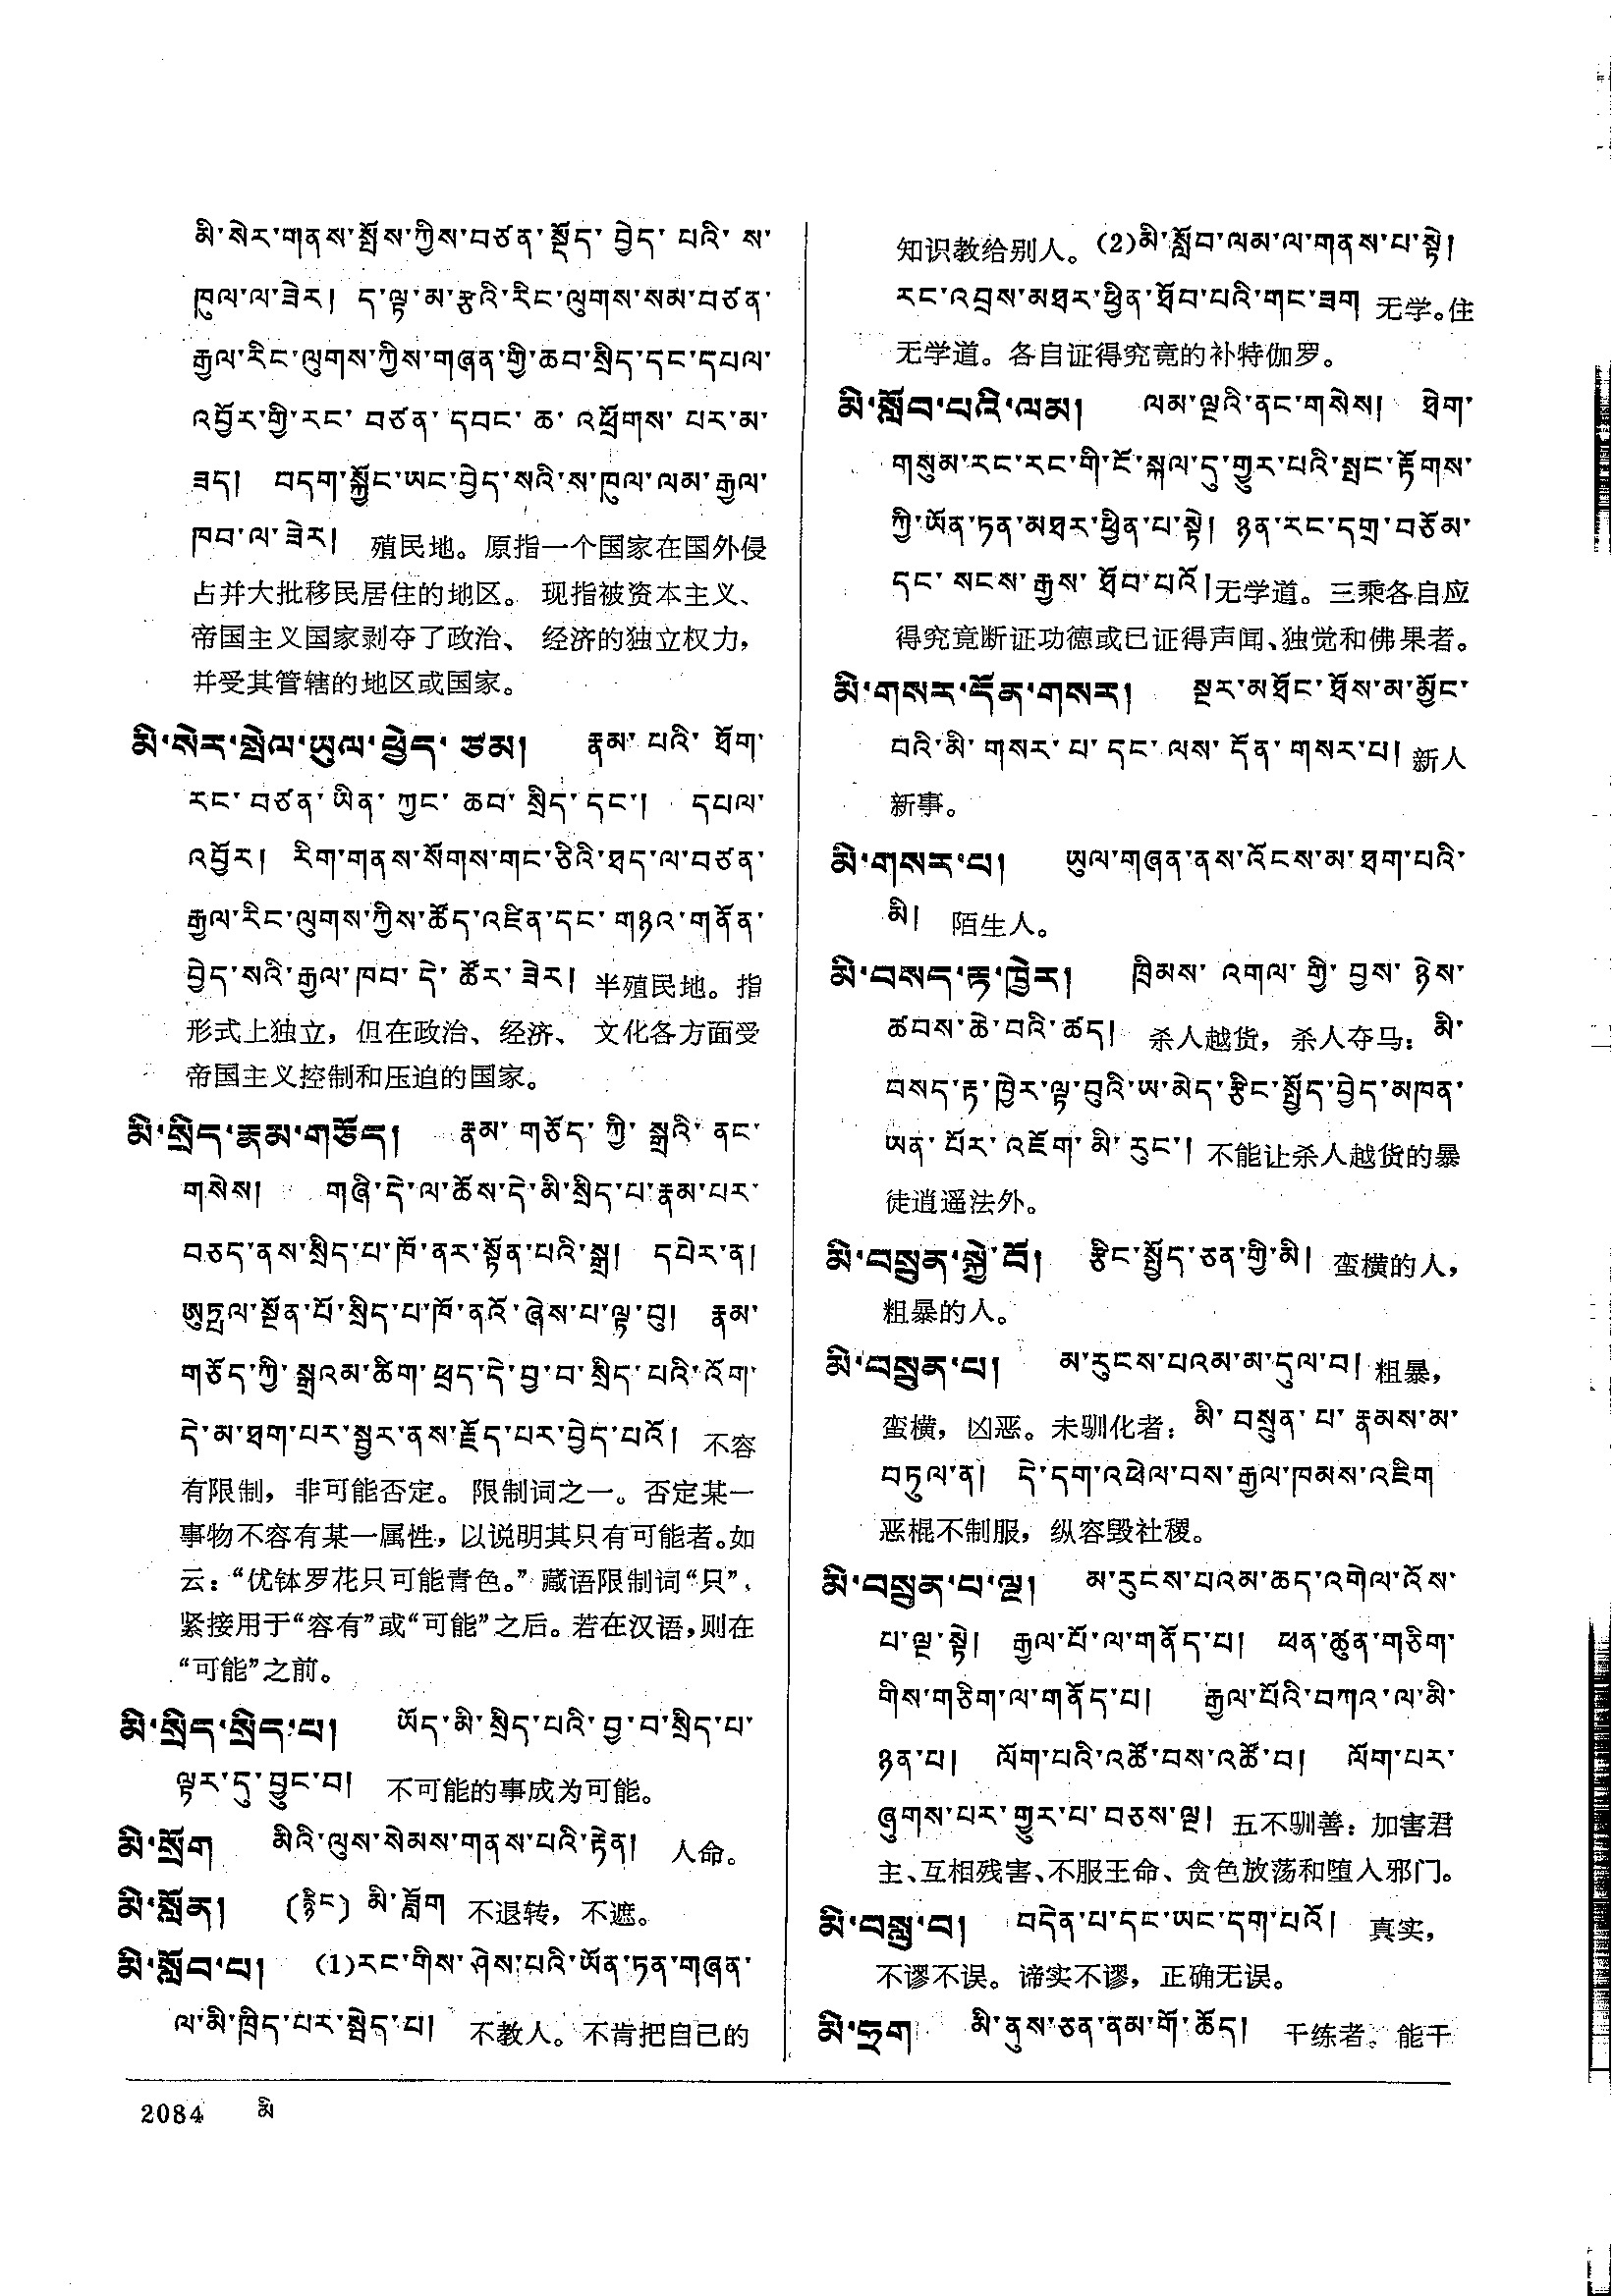 མི་སེར་གནས་སྤོས་ཀྱིས་བཙན་སྡོད་བྱེད་པའི་ས་
ཁུལ་ལ་ཟེར། ད་ལྟ་མ་རྩའི་རིང་ལུགས་སམ་བཙན་
རྒྱལ་རིང་ལུགས་ཀྱིས་གཞན་གྱི་ཆབ་སྲིད་དང་དཔལ་
འབྱོར་གྱི་རང་བཙན་དབང་ཆ་འཕྲོགས་པར་མ་
ཟད། བདག་སྐྱོང་ཡང་བྱེད་སའི་ས་ཁུལ་ལམ་རྒྱལ་
ཁབ་ལ་ཟེར། 殖民地。原指一个国家在国外侵
占并大批移民居住的地区。 现指被资本主义、
帝国主义国家剥夺了政治、 经济的独立权力，
并受其管辖的地区或国家。
མི་སེར་སྤེལ་ཡུལ་ཕྱེད་ཙམ། རྣམ་པའི་ཐོག་
རང་བཙན་ཡིན་ཀྱང་ཆབ་སྲིད་དང་། དཔལ་
འབྱོར། རིག་གནས་སོགས་གང་ཅིའི་ཐད་ལ་བཙན་
རྒྱལ་རིང་ལུགས་ཀྱིས་ཚོད་འཛིན་དང་གཉའ་གནོན་
བྱེད་སའི་རྒྱལ་ཁབ་དེ་ཚོར་ཟེར། 半殖民地。指
形式上独立，但在政治、经济、 文化各方面受
帝国主义控制和压迫的国家。
མི་སྲིད་རྣམ་གཅོད། རྣམ་གཅོད་ཀྱི་སྒྲའི་ནང་
གསེས། གཞི་དེ་ལ་ཆོས་དེ་མི་སྲིད་པ་རྣམ་པར་
བཅད་ནས་སྲིད་པ་ཁོ་ནར་སྟོན་པའི་སྒྲ། དཔེར་ན།
ཨུཏྤལ་སྔོན་པོ་སྲིད་པ་ཁོ་ནའོ་ཞེས་པ་ལྟ་བུ། རྣམ་
གཅོད་ཀྱི་སྒྲའམ་ཚིག་ཕྲད་དེ་བྱ་བ་སྲིད་པའི་འོག་
དེ་མ་ཐག་པར་སྦྱར་ནས་རྗོད་པར་བྱེད་པའོ། 不容
有限制，非可能否定。 限制词之一。否定某一
事物不容有某一属性，以说明其只有可能者。如
云：“优钵罗花只可能青色。” 藏语限制词“只”，
紧接用于“容有”或“可能”之后。若在汉语，则在
“可能”之前。
མི་སྲིད་སྲིད་པ། ཡོད་མི་སྲིད་པའི་བྱ་བ་སྲིད་པ་
ལྟར་དུ་བྱུང་བ། 不可能的事成为可能。
མི་སྲོག མིའི་ལུས་སེམས་གནས་པའི་རྟེན། 人命。
མི་སློན། (རྙིང) མི་ཟློག 不退转，不遮。
མི་སློབ་པ། (1)རང་གིས་ཤེས་པའི་ཡོན་ཏན་གཞན་
ལ་མི་ཁྲིད་པར་སྦེད་པ། 不教人。不肯把自己的
知识教给别人。(2)མི་སློབ་ལམ་ལ་གནས་པ་སྟེ།
རང་འབྲས་མཐར་ཕྱིན་ཐོབ་པའི་གང་ཟག 无学。住
无学道。各自证得究竟的补特伽罗。
མི་སློབ་པའི་ལམ། ལམ་ལྔའི་ནང་གསེས། ཐེག་
གསུམ་རང་རང་གི་ངོ་སྐལ་དུ་གྱུར་པའི་སྤང་རྟོགས་
ཀྱི་ཡོན་ཏན་མཐར་ཕྱིན་པ་སྟེ། ཉན་རང་དགྲ་བཅོམ་
དང་སངས་རྒྱས་ཐོབ་པའོ། 无学道。三乘各自应
得究竟断证功德或已证得声闻、独觉和佛果者。
མི་གསར་དོན་གསར། སྔར་མཐོང་ཐོས་མ་མྱོང་
བའི་མི་གསར་པ་དང་ལས་དོན་གསར་པ། 新人
新事。
མི་གསར་པ། ཡུལ་གཞན་ནས་འོངས་མ་ཐག་པའི་
མི། 陌生人。
མི་བསད་རྟ་ཁྱེར། ཁྲིམས་འགལ་གྱི་བྱས་ཉེས་
ཚབས་ཆེ་བའི་ཚད། 杀人越货，杀人夺马：མི་
བསད་རྟ་ཁྱེར་ལྟ་བུའི་ཨ་མེད་རྩིང་སྤྱོད་བྱེད་མཁན་
ཡན་པོར་འཇོག་མི་རུང་། 不能让杀人越货的暴
徒逍遥法外。
མི་བསྲུན་སྐྱེ་བོ། རྩིང་སྤྱོད་ཅན་གྱི་མི། 蛮横的人，
粗暴的人。
མི་བསྲུན་པ། མ་རུངས་པའམ་མ་དུལ་བ། 粗暴，
蛮横，凶恶。未驯化者：མི་བསྲུན་པ་རྣམས་མ་
བཏུལ་ན། དེ་དག་འཕེལ་བས་རྒྱལ་ཁམས་འཇིག
恶棍不制服，纵容毁社稷。
མི་བསྲུན་པ་ལྔ། མ་རུངས་པའམ་ཆད་འགེལ་འོས་
པ་ལྔ་སྟེ། རྒྱལ་པོ་ལ་གནོད་པ། ཕན་ཚུན་གཅིག་
གིས་གཅིག་ལ་གནོད་པ། རྒྱལ་པོའི་བཀའ་ལ་མི་
ཉན་པ། ལོག་པའི་འཚོ་བས་འཚོ་བ། ལོག་པར་
ཞུགས་པར་གྱུར་པ་བཅས་ལྔ། 五不驯善：加害君
主、互相残害、不服王命、贪色放荡和堕入邪门。
མི་བསླུ་བ། བདེན་པ་དང་ཡང་དག་པའོ། 真实，
不谬不误。谛实不谬，正确无误。
མི་ཧྲག མི་ནུས་ཅན་ནམ་གོ་ཆོད། 干练者。能干
2084 མི